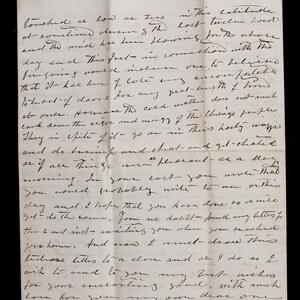 touched as low as two in this latitude
at sometime during the last twelve hours
and the wind has been blowing for the whole
day and this fact in connection with the
foregoing would incline one to believe
that it has been of late very uncomfortable
to be out of doors for any great length of time
at once. However the cold weather does not much
cool down the ardor and energy of the Chicago people
They in spite of it go on in this hasty
and do business and cheat and get cheated
as if all things were "pleasant as a May
morning. In your last you wrote that
you would probably write to me on this
day and I hope that you have done so as will
get the same. You no doubt found my letters for
the 2 inst. awaiting you when you reached
your home. And now I must draw this
letter to a close and as I do so I
wish to send to you my best wishes
for your unceasing good, with much
love for your own dear one